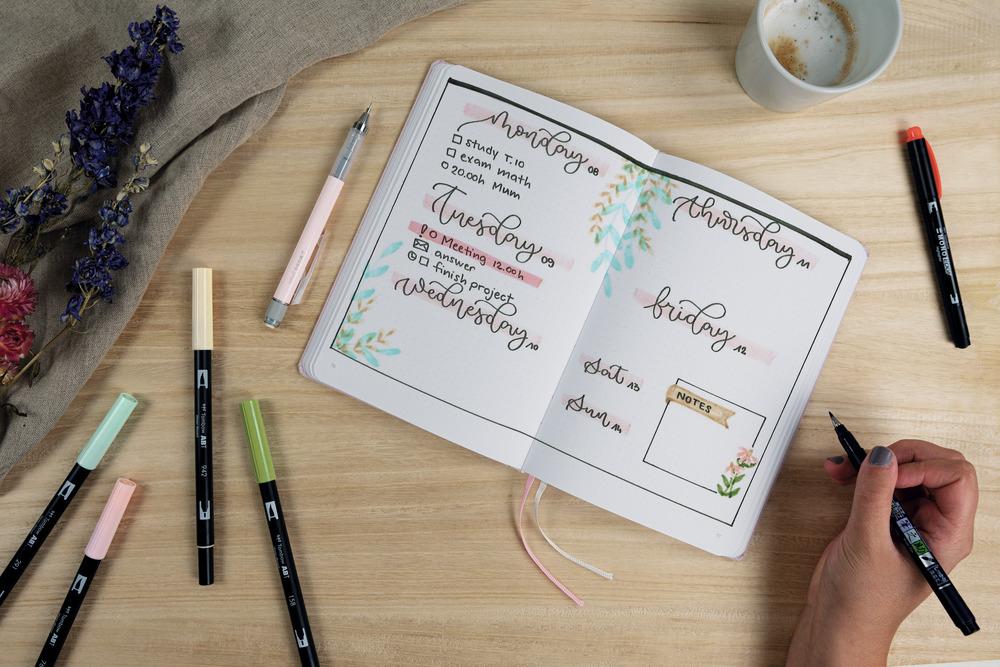 Monday 08
study T.10
exam math
20.00h Mum
Tuesday 09
! Meeting 12.00h
answer
finish project
Wednesday 10
Thursday 11
friday 12
Sat 13
Sun 14
NOTES
Tombow ABT
942
158
291
ABT